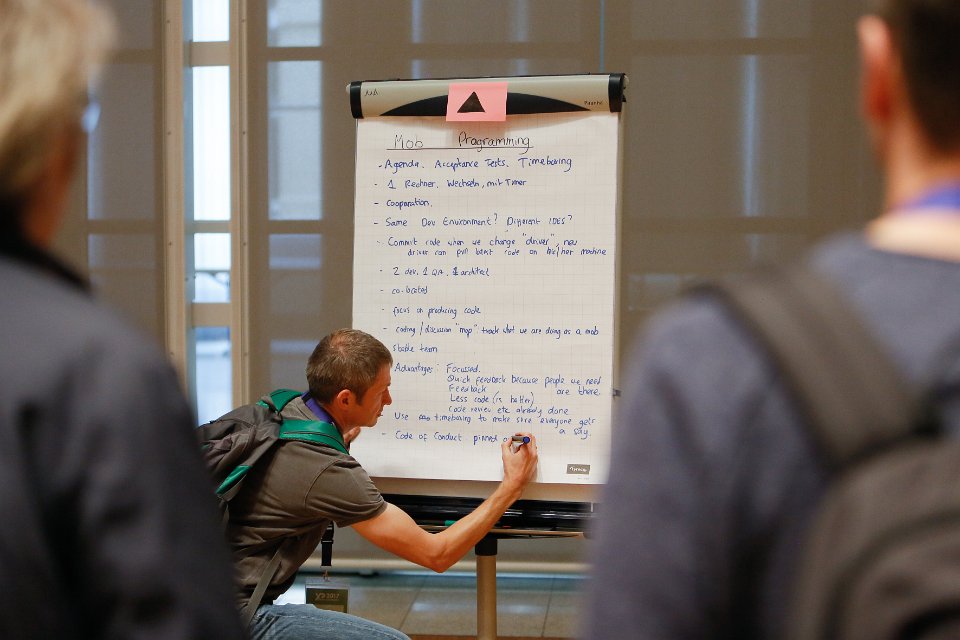 Piranha
Mob Programming
- Agenda, Acceptance Tests, Timeboxing
- 1 Rechner, Wechseln, mit Timer
- Cooperation.
- Same Dev Environment? Different IDEs?
- Commit code when we change "driver", new
driver can pull latest code on his/her machine
- 2 dev, 1 QA, 1 architect
- co-located
- focus on producing code
- coding/discussion "map", track what we are doing as a mob
stable team
Advantages: Focussed.
Quick feedback because people we need
Feedback are there.
Less code (is better)
Code review etc already done
Use timeboxing to make sure everyone gets
a say.
- Code of Conduct. pinned
2017